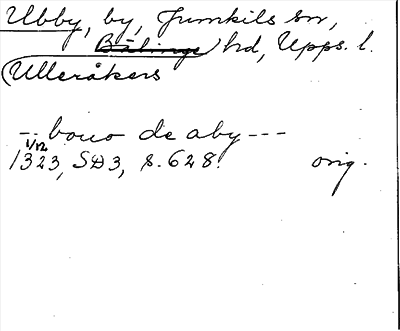 Ubby, by, Jumkils sn,
Bälinge hd, Upps. l.
(Ulleråkers
-- bouo de aby ---
1/12
1323, SD3, s. 628. orig.